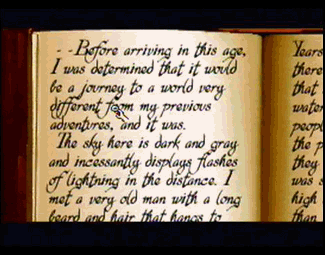 - - Before arriving in this age,
I was determined that it would
be a journey to a world very
different from my previous
adventures, and it was.
The sky here is dark and gray
and incessantly displays flashes
of lightning in the distance. I
met a very old man with a long
beard and hair that hangs to
Years
there
that
water
peopl
the
they
was s
high
than